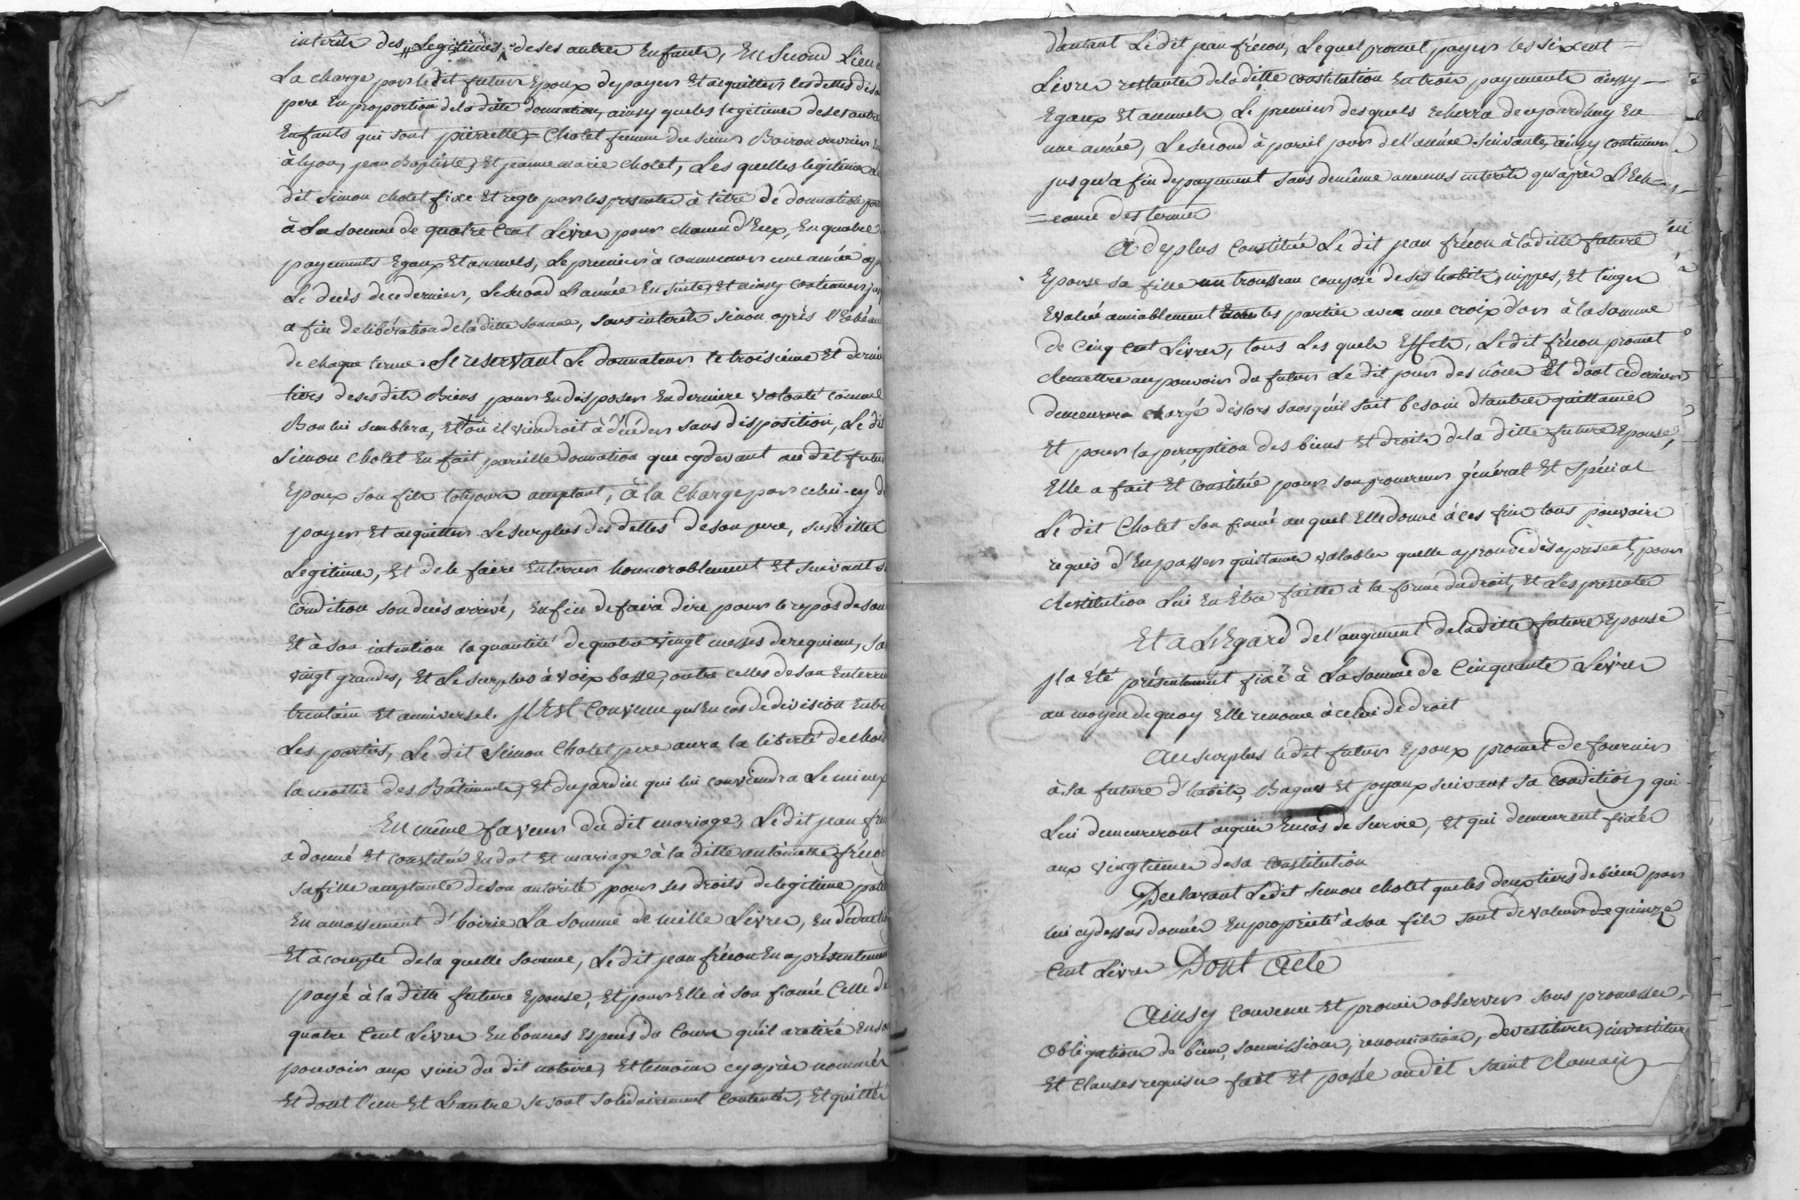 interêts des Legitimes de ses autres Enfants, En Second Lieu
La charge par le dit futur Epoux de payer Et acquitter les dettes de
pere En proportion de la ditte donnation, ainsy que les legitimes de ses autres
Enfants qui sont pierrette Chotet femme du sieur Boiron ouvrier
à lyon, jean Baptiste, Et jeanne marie Chotet, Les quelles legitimes
dit Simon chotet fixe Et regle par les presentes à titre de donnation
à La somme de quatre Cent Livres pour chacun d'Eux, En quatre
payements Egaux Et annuels, Le premier à commencer une année
Le décès de ce dernier, Le second L'année Ensuite, Et ainsy continuer
a fin de libération de la ditte somme, sans interêts sinon après l'Echéan
de chaque terme. Se reservant Le donnateur le troisiéme Et dernier
tiers de ses dits Biens pour En disposer En derniere volonté comme
Bon lui semblera, Et où il viendroit à déceder sans disposition, Le dit
Simon Chotet En fait pareille donnation que cy devant au dit futur
Epoux son fils toujours acceptant, à la Charge par celui-cy de
payer Et acquitter Le surplus des dettes de son pere, susdittes
Legitimes, Et de le faire Enterrer honnorablement Et suivant sa
condition son décès arrivé, enfin de faire dire pour le repos de son
Et à son intention la quantité de quatre vingt messes de requiem,
vingt grandes, Et Le surplus à voix basse, outre celles de son Enterre
trentain Et anniversel. Il Est convenu qu'En cas de division Entre
Les parties, Le dit Simon Chotet pere aura la liberté de choi
la moitié des Bâtiments, Et du jardin qui lui conviendra Le mieux
En même faveur du dit mariage, Le dit jean
a donné Et constitué En dot Et mariage à la ditte antoinette frécon
sa fille acceptante de son autorité, pour ses droits de legitime
En amassement d'hoirie La somme de mille Livres, En déduction
Et à compte de la quelle somme, Le dit jean frécon En a présentement
payé à la ditte future Epouse, Et pour Elle à son fiancé Celle de
quatre Cent Livres En bonnes Especes du Cours qu'il a retiré En son
pouvoir aux vüe du dit notaire, Et temoins cy après nommés
Et dont l'un Et L'autre se sont solidairement contentés, Et quitter
d'autant Le dit jean frécon, Lequel promet payer les six cent
Livres restantes de la ditte constitution En trois payements ainsy
Egaux Et annuels, Le premier des quels Echerra de ajourdhuy En
une année, Le second à pareil jour de l'année suivante, ainsy continuer
jusqu'a fin de payement sans de même aucuns interêts qu'après L'Eché
=eance des termes
A de plus constitué Le dit jean frécon à la ditte future
Epouse sa fille un trousseau composé de ses habits, nippes, Et linges
Evalué amiablement Entre les parties avec une croix d'or à la somme
de Cinq Cent Livres, tous Les quels Effets, Le dit frécon promet
de mettre au pouvoir du futur Le dit jour des nôces Et dont ce dernier
demeurera chargé dès lors sans qu'il soit besoin d'autre quittance
Et pour la perception des biens Et droits de la ditte future Epouse,
Elle a fait Et constitué pour son procureur général Et spécial
Le dit Chotet son fiancé au quel Elle donne à ces fins tous pouvoirs
requis d'En passer quittances valables quelle aprouve dès apresent, pour
restitution Lui En être faitte à la forme du droit, Et Les presentes
Et a L'Egard de l'augment de la ditte future Epouse
Il a été présentement fixé à La somme de Cinquante Livres
au moyen de quoy Elle renonce à celui de droit
Au surplus Le dit futur Epoux promet de fournir
à sa future d'habits, Bagues Et joyaux suivant sa condition, qui
Lui demeureront acquis En cas de survie, Et qui demeurent fixés
aux vingtiemes de sa constitution
Declarant Ledit Simon chotet que les deux tiers de biens par
lui cy dessus donnés En proprieté à son fils sont de valeur de quinze
Cent Livres Dont Acte
Ainsy convenu Et promis observer sous promesses,
obligations de biens, soumissions, renonciations, devestitures, investitures
Et Clauses requises fait Et passé audit Saint Romain